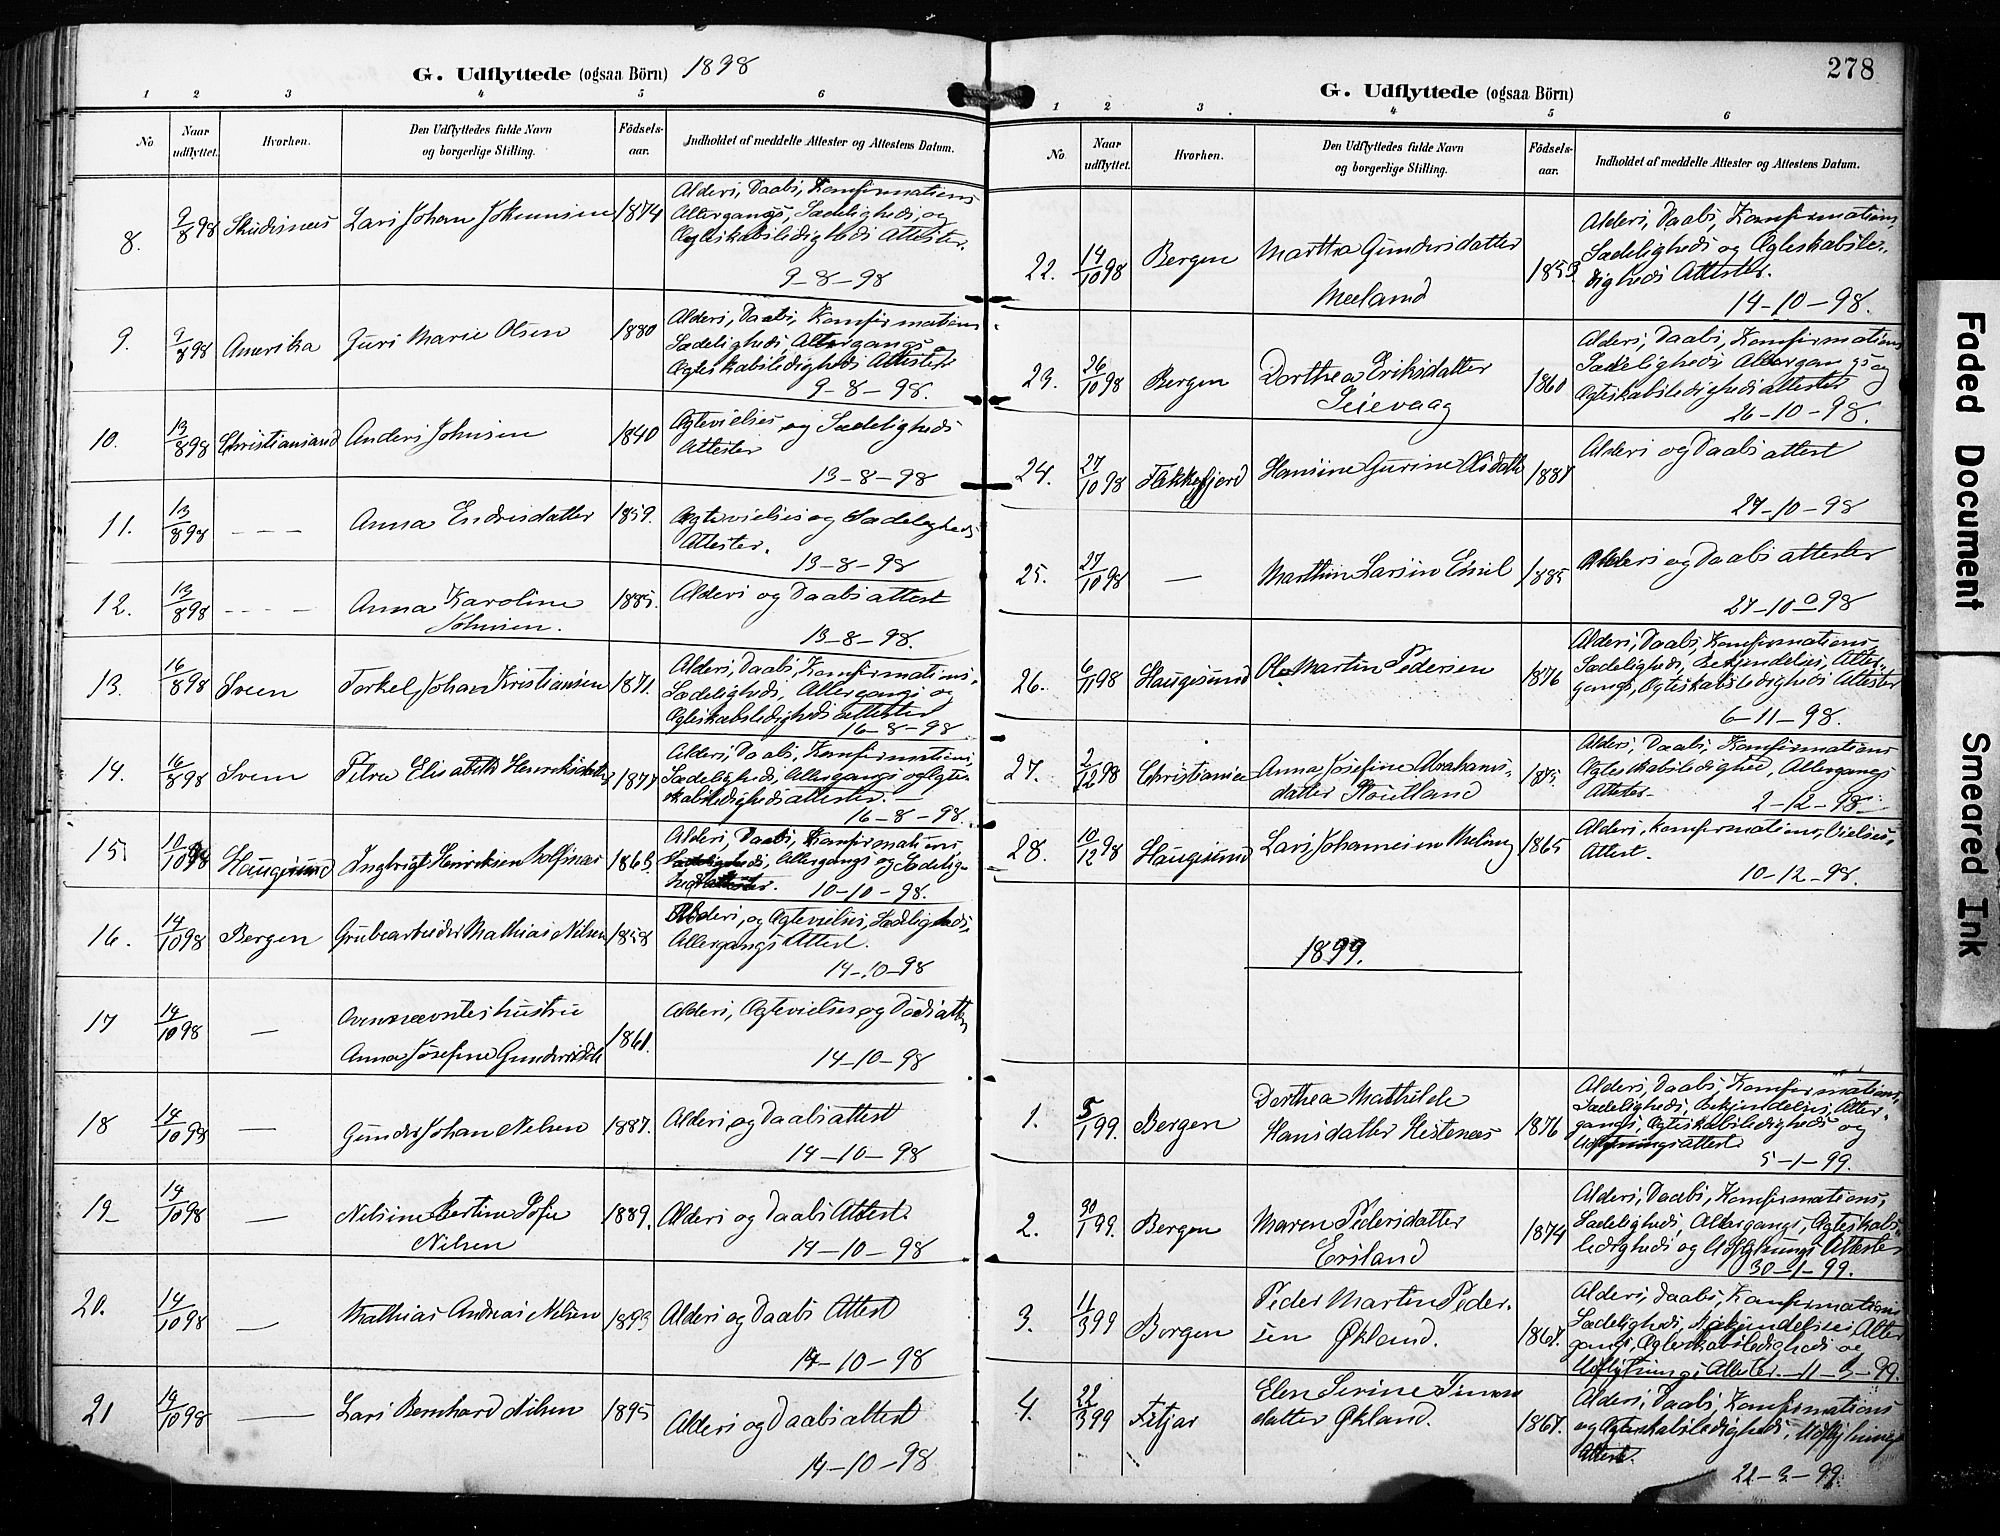 G. Udflyttede (ogsaa Börn) 1898
1 2 3 4 5 6
No. Naar udflyttet. Hvorhen. Den Udflyttedes fulde Navn og borgerlige Stilling. Födsels-aar. Indholdet af meddelte Attester og Attestens Datum.
8. 9/8 98 Skudesnes Lars Johan Johannesen 1874 Alders, Daabs, Konfirmations
Altergangs, Sædeligheds, og
Ægteskabsledigheds Attester.
9-8-98
9. 9/8 98 Amerika Guri Marie Olsen 1880 Alders, Daabs, Konfirmations
Sædeligheds Altergangs og
Ægteskabsledigheds Attester
9-8-98.
10. 13/8 98 Christiansand Anders Johnsen 1840 Ægtevielses og Sædeligheds
Attester
13-8-98
11. 13/8 98 - - - Anna Endresdatter 1859. Ægtevielses og Sædeligheds
Attester.
13-8-98
12. 13/8 98 - - - - Anna Karoline 1885. Alders og Daabsattest
Johnsen.
13-8-98.
13. 16/8 98 Sveen Torkel Johan Kristiansen 1871. Alders, Daabs, Konfirmations,
Sædeligheds, Altergangs og
Ægteskabsledigheds attester
16-8-98
14. 16/8 98 Sveen Petra Elisabeth Henriksdatter 1877 Alders, Daabs, Konfirmations,
Sædeligheds, Altergangs og Ægte-
skabsledighedsattester.-
16-8-98.
15 10/10 98 Haugesund Ingbrigt Henriksen 1863. Alders, Daabs, Konfirmations,
Altergangs og Sædelig-
10-10-98.
16. 14/10 98 Bergen Grubearbeider Mathias Nilsen 1858 Alders, og Ægtevielses, Sædeligheds,
Altergangs Attest.
14-10-98
17 14/10 98 — Ovennævntes hustru
Anna Josefine 1861. Alders, Ægtevielses og
14-10-98
18 14/10 98 — Gunder Johan Nelsen 1887. Alders og Daabsattest
14-10-98
19- 14/10 98 — Nilsine Bertine Sofie 1889. Alders og Daabs Attest.
Nilsen
14-10-98
20. 14/10 98 — Mathias Andreas Nelsen 1893 Alders og Daabs Attest
14-10-98
21 14/10 98 — Lars Bernhard Nilsen 1895 Alders og Daabsattest
14-10-98
278
G. Udflyttede (ogsaa Börn)
1 2 3 4 5 6
No. Naar udflyttet. Hvorhen. Den Udflyttedes fulde Navn og borgerlige Stilling. Födsels-aar. Indholdet af meddelte Attester og Attestens Datum.
22. 14/10 98 Bergen Martha Gundersdatter
Mæland 1853. Alders, Daabs, Konfirmations,
Sædeligheds og Ægteskabsle-
digheds Attester.
14-10-98.
23. 26/10 98 Bergen Dorthea Eriksdatter 1860 Alders, Daabs, Konfirmations
Sædeligheds Altergangs og
Ægteskabsledighedsattester
26-10-98.
24. 27/10 98 Hansine Gurine 1887 Alders og Daabsattest
27-10-98
25. 27/10 98 — Marthin Larsen 1885 Alders og Daabsattester
27-10-98
26. 6/11 98 Haugesund Ole Martin Pedersen 1876 Alders, Daabs, Konfirmations-
Sædeligheds, Bekjendelses, Alter-
gangs, Ægteskabsledigheds Attester
6-11-98.
27. 2/12 98 Christiania Anna Josefine Abrahams-
datter 1875. Alders, Daabs, Konfirmations
Ægteskabsledighed, Altergangs
Attester-
2-12-98.
28. 10/12 98 Haugesund Lars Johannesen Meling 1865 Alders, Konfirmations, Vielses,
Attest.
10-12-98.
1899.
1. 5/1 99. Bergen Dorthea Mathilde
Hansdatter Hestenæs 1876 Alders, Daabs, Konfirmations,
Sædeligheds, Bekjendelses, Alter-
gangs, Ægteskabsledigheds og
Udflytningsattest
5-1-99.
2. 30/1 99. Bergen Maren Pedersdatter
Ersland 1874 Alders, Daabs, Konfirmations,
Sædeligheds, Altergangs, Ægteskabs
ledigheds og Udflytnings Attester
30-1-99.
3. 11/3 99 Bergen Peder Martin Peder-
sen Økland. 1867. Alders, Daabs, Konfirmations
Sædeligheds, Bekjendelses, Alter
gangs, Ægteskabsledigheds og
Udflytnings Attester. 11-3-99.
4. 22/3 99 Fitjar Elen Serine
datter Økland. 1867. Alders, Daabs, Konfirmations
og Ægteskabsledigheds, Udflytnings
Attest.
22-3-99.
Faded Document
Smeared Ink